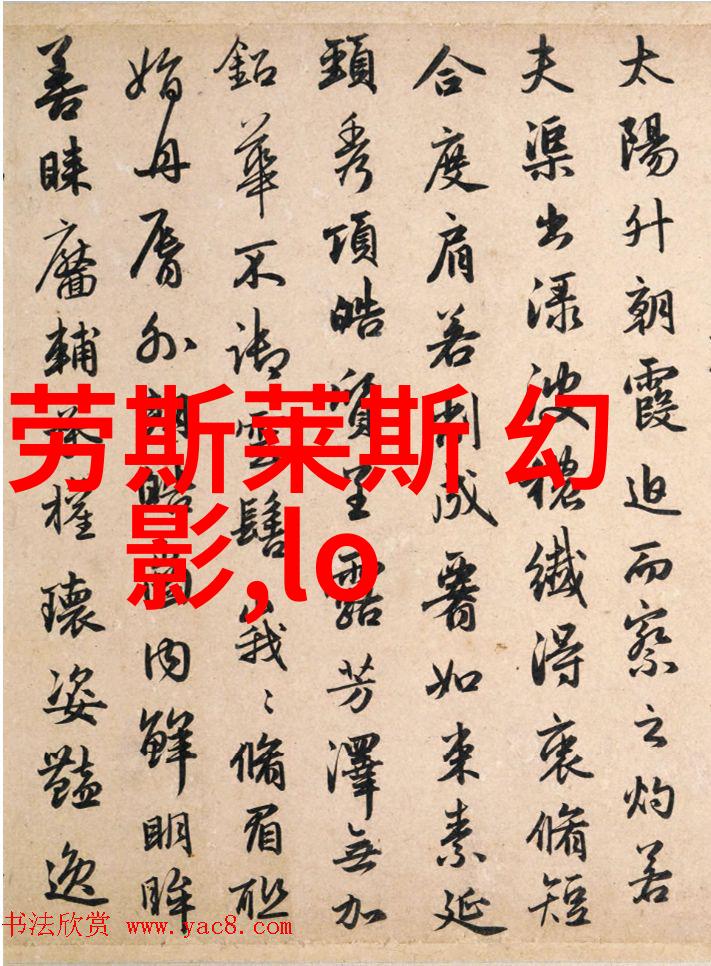 太陽升朝霞迫而察之灼若
夫渠出渌波穠纖淂衷脩短
合度肩若削成要如束素延
頸秀項皓質呈露芳澤無加
鉛華不御雲髻峩〻脩眉聯
娟丹脣外朗皓齒内鮮明眸
善睞靨輔承權瓌姿豔逸
劳斯莱斯 幻
影,lo
书法欣赏 www.yac8.com